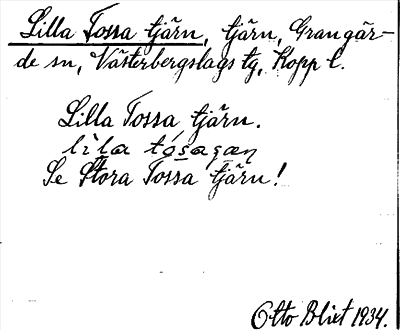 Lilla Tossa tjärn, tjärn, Grangär-
de sn, Västerbergslags tg, Kopp l.
Lilla Tossa tjärn.
Se Stora Tossa tjärn!
Otto Blixt 1934.